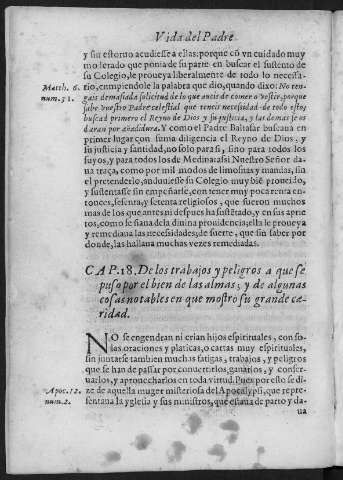 Vida del Padre
y sin estorno acudiesse a ellas: porque cõ vn cuidado muy
moderado que ponia de su parte en buscar el sustento de
su Colegio, le proueya liberalmente de todo lo necessa-
Matth. 6. rio, cumpiendole la palabra que dio, quando dixo: No ten-
num. 31. gais demasiada solicitud de lo que aueis de comer o vestir, porque
sabe vuestro Padre celestial que teneis necesidad de todo esto;
buscad primero el Reyno de Dios y su justicia, y las demas se os
daran por añadidura. Y como el Padre Baltasar buscaua en
primer lugar con suma diligencia el Reyno de Dios, y
su justicia y santidad, no solo para si, sino para todos los
suyos, y para todos los de Medina: assi Nuestro Señor da-
ua traça, como por mil modos de limosnas y mandas, sin
el pretenderlo, anduuiesse su Colegio muy biẽ proueido,
y sustentasse sin empeñarse, con tener muy poca renta en-
tonces, sesenta, y setenta religiosos, que fueron muchos
mas de los que antes ni despues ha sustẽtado, y en sus aprie
tos, como se fiaua de la diuina prouidencia; ella le proueya
y remediaua las necessidades; de suerte, que sin saber por
donde, las hallaua muchas vezes remediadas.
CAP. 18. De los trabajos y peligros a que se
puso por el bien de las almas; y de algunas
cosas notables en que mostro su grande ca-
ridad.
NO se engendran ni crian hijos espirituales, con so-
las oraciones y platicas, o cartas muy espirituales,
sin juntarse tambien muchas fatigas, trabajos, y peligros
que se han de passar por conuertirlos, ganarlos, y conser-
uarlos, y aprouecharlos en toda virtud. Pues por esto se di-
Apoc. 12. ze de aquella muger misteriosa del Apocalypsi, que repre-
num. 2. sentaua la yglesia y sus ministros, que estaua de parto y da-
ua